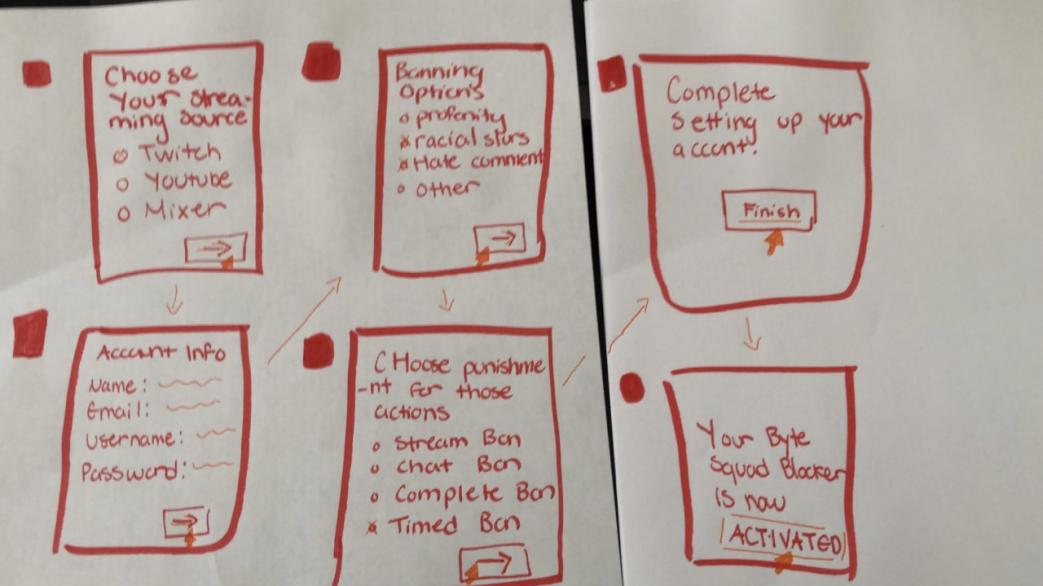 Choose
Your Strea-
ming Source
Twitch
Youtube
Mixer
Account Info
Name:
Email:
Username:
Password:
Banning
Options
profenity
racial slurs
Hate comment
Other
CHoose punishme
-nt for those
actions
Stream Ban
Chat Ban
Complete Ban
Timed Ban
Complete
Setting up your
accont!
Finish
Your Byte
Squad Blocker
is now
ACTIVATED